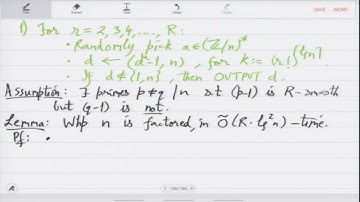 SAVE MORE
1) For r = 2,3,4,..., R:
· Randomly pick a∈(ℤ/n)*
· d ← (a^k-1, n), for k:= (r!)^⌈lg n⌉
· If d∉{1,n}, then OUTPUT d.
Assumption: ∃ primes p≠q | n s.t (p-1) is R-smooth
but (q-1) is not.
Lemma: Whp n is factored, in Õ(R·lg²n)-time.
Pf: ·